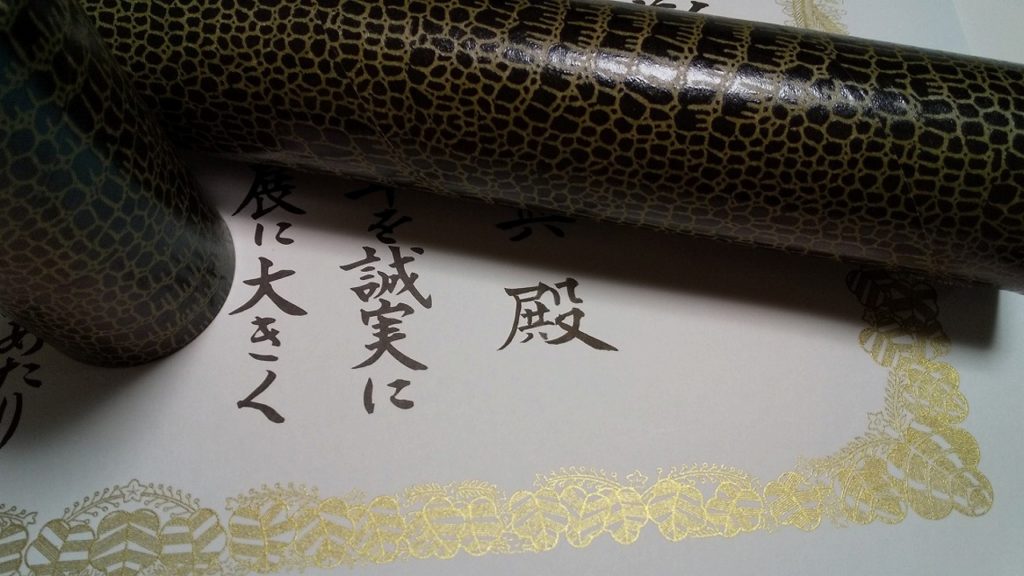 殿
を誠実に
展に大きく
あたり